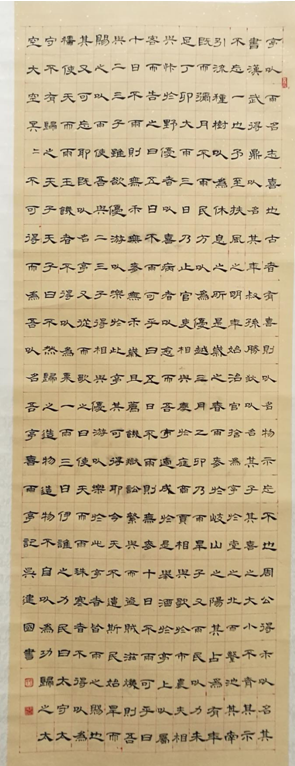 亭以雨名志喜也古者有喜則以名物示不忘也周公得禾以名其
書漢武得鼎以名其年叔孫勝狄以名其子其喜之大小不齊其示
不忘一也予至扶風之明年始治官舍為亭於堂之北而鑿池其南
引流種樹以為休息之所是歲之春雨麥於岐山之陽其占為有年
既而彌月不雨民方以為憂越三月乙卯乃雨甲子又雨民以為未
足丁卯大雨三日乃止官吏相與慶於庭商賈相與歌於市農夫相
與忭於野憂者以喜病者以愈而吾亭適成於是舉酒於亭上以屬
客而告之曰五日不雨可乎曰五日不雨則無麥十日不雨可乎曰
十日不雨則無禾無麥無禾歲且荐饑獄訟繁興而盜賊滋熾則吾
與二三子雖欲優游以樂於此亭其可得耶今天不遺斯民始旱而
賜之以雨使吾與二三子得相與優游以樂於此亭者皆雨之賜也
其又可忘耶既以名亭又從而歌之曰使天而雨珠寒者不得以為
襦使天而雨玉饑者不得以為粟一雨三日伊誰之力民曰太守太
守不有歸之天子天子曰不然歸之造物造物不自以為功歸之太
空太空冥冥不可得而名吾以名吾亭喜雨亭記吳建國書